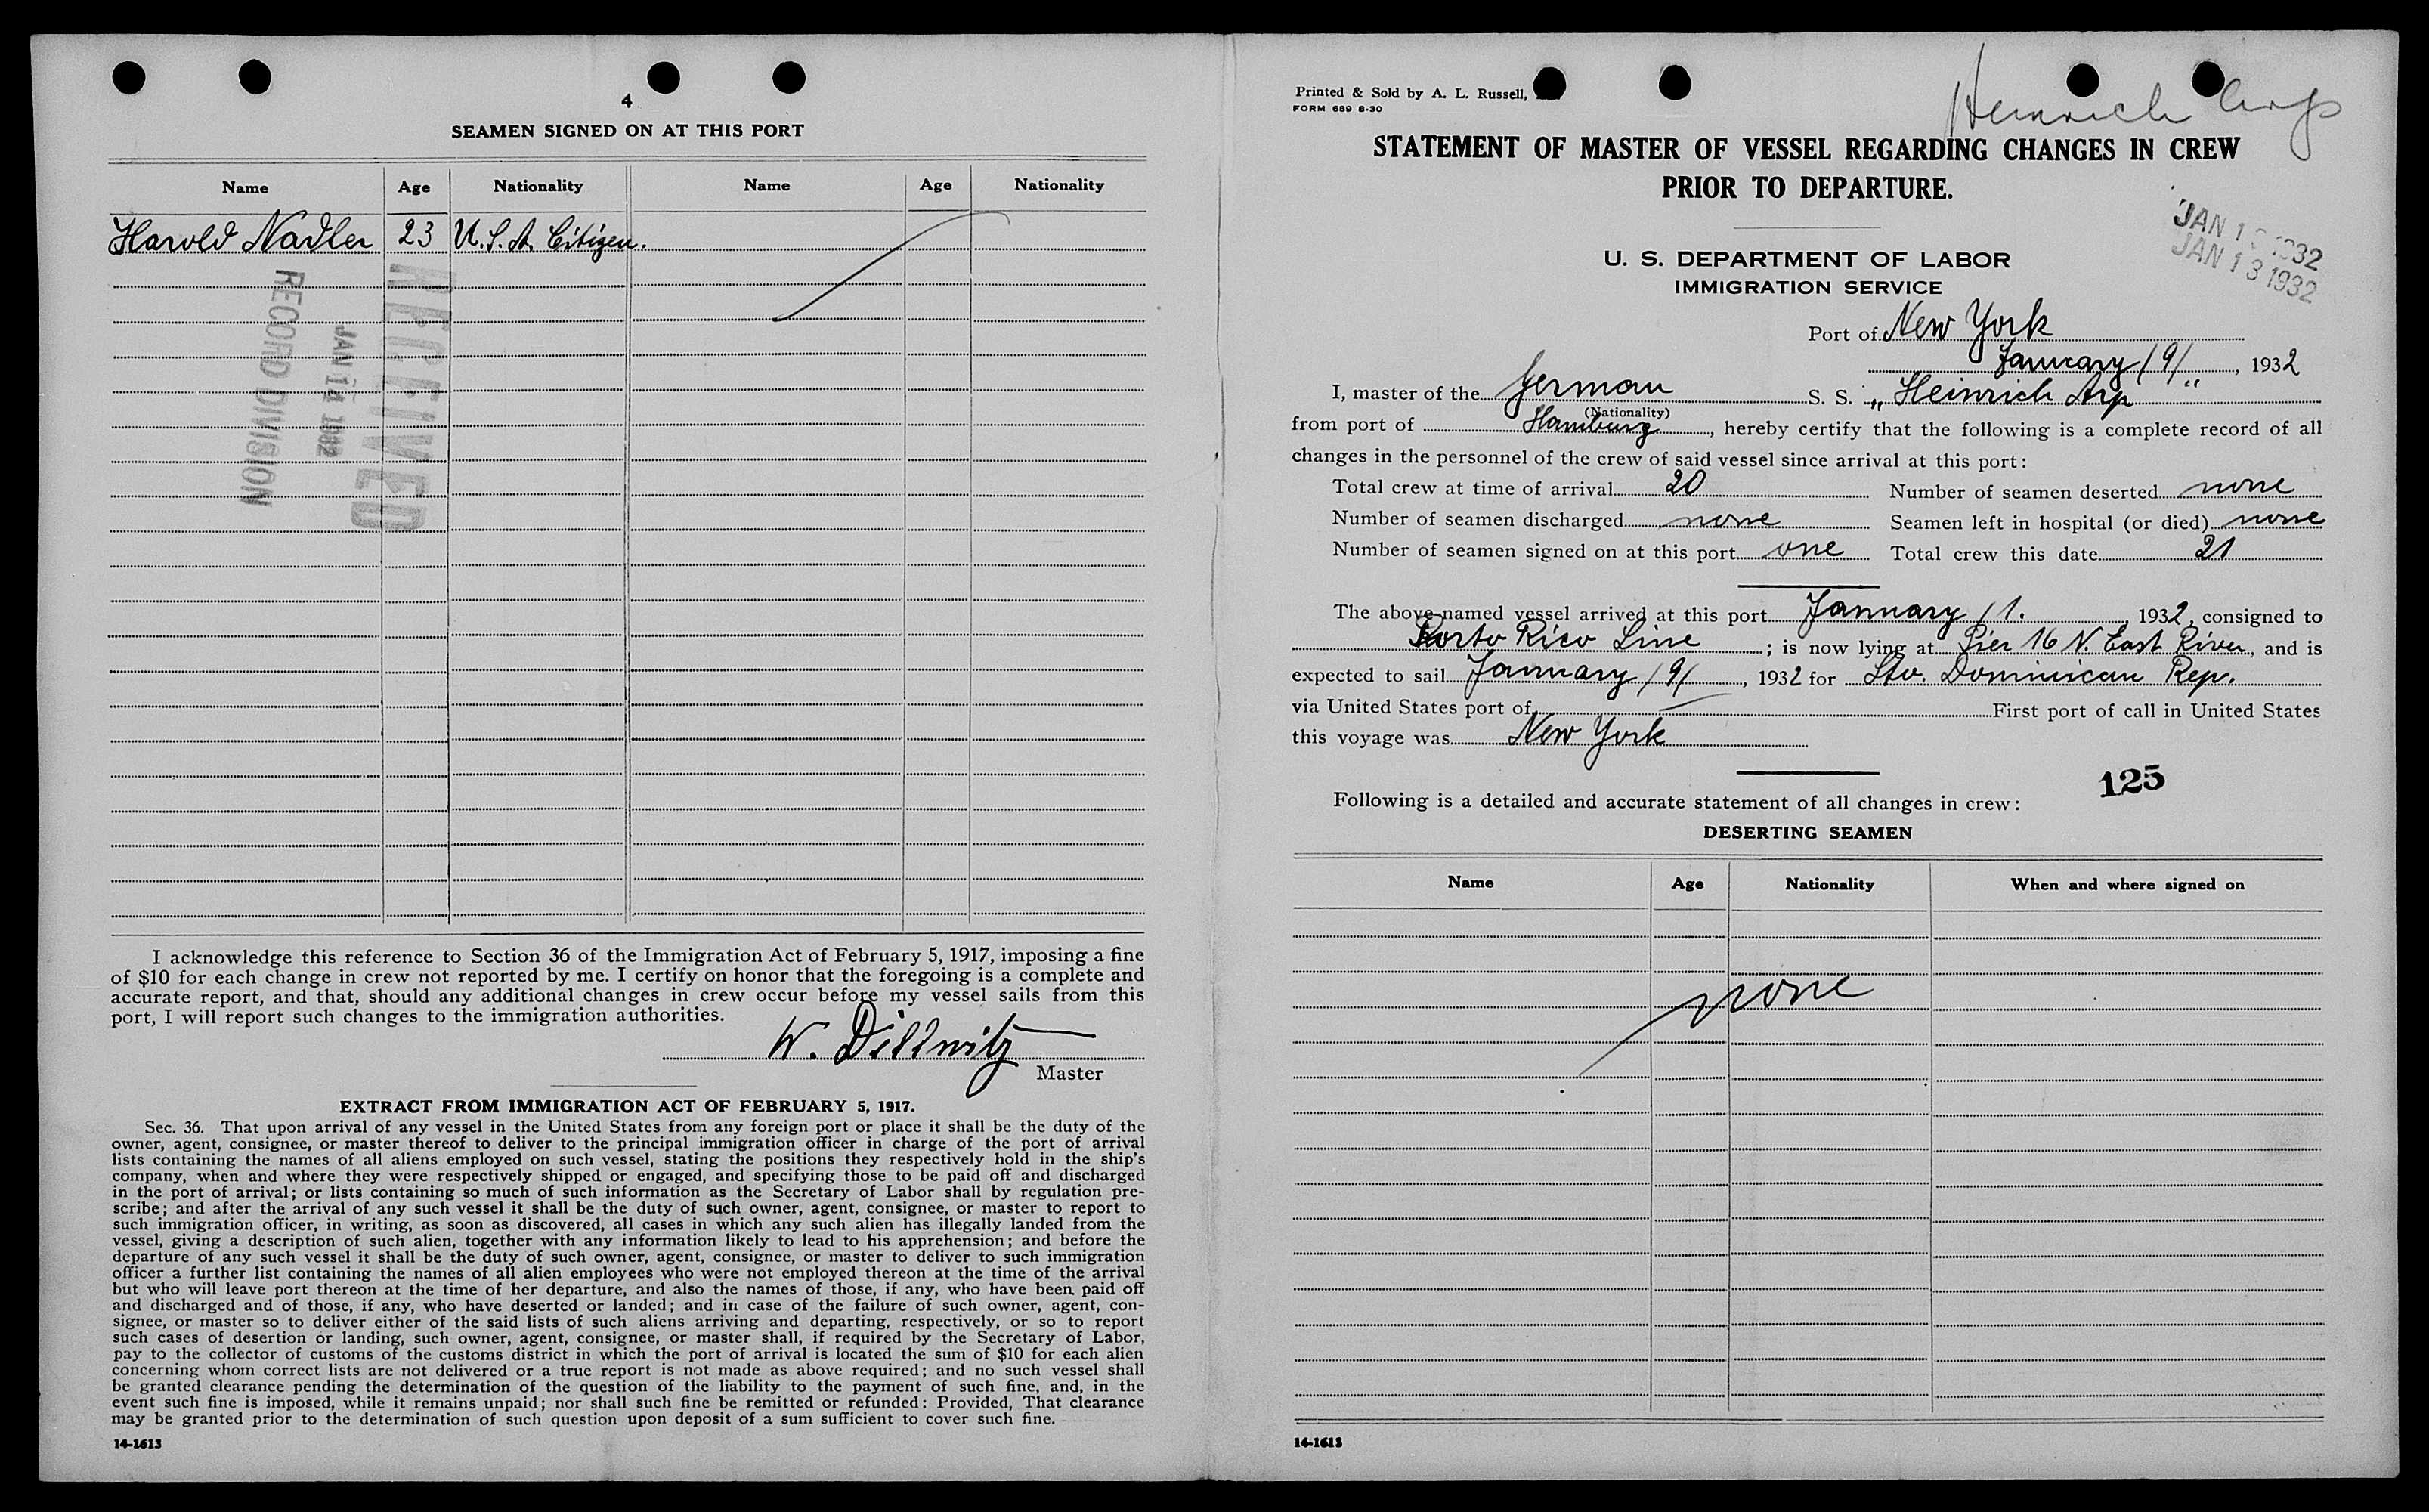 4
SEAMEN SIGNED ON AT THIS PORT
Name Age Nationality Name Age Nationality
Harold Nadler 23 U.S.A. Citizen.
RECEIVED
JAN 1 1932
RECORD DIVISION
I acknowledge this reference to Section 36 of the Immigration Act of February 5, 1917, imposing a fine
of $10 for each change in crew not reported by me. I certify on honor that the foregoing is a complete and
accurate report, and that, should any additional changes in crew occur before my vessel sails from this
port, I will report such changes to the immigration authorities.
W. Dillwitz
Master
EXTRACT FROM IMMIGRATION ACT OF FEBRUARY 5, 1917.
Sec. 36. That upon arrival of any vessel in the United States from any foreign port or place it shall be the duty of the
owner, agent, consignee, or master thereof to deliver to the principal immigration officer in charge of the port of arrival
lists containing the names of all aliens employed on such vessel, stating the positions they respectively hold in the ship's
company, when and where they were respectively shipped or engaged, and specifying those to be paid off and discharged
in the port of arrival; or lists containing so much of such information as the Secretary of Labor shall by regulation pre-
scribe; and after the arrival of any such vessel it shall be the duty of such owner, agent, consignee, or master to report to
such immigration officer, in writing, as soon as discovered, all cases in which any such alien has illegally landed from the
vessel, giving a description of such alien, together with any information likely to lead to his apprehension; and before the
departure of any such vessel it shall be the duty of such owner, agent, consignee, or master to deliver to such immigration
officer a further list containing the names of all alien employees who were not employed thereon at the time of the arrival
but who will leave port thereon at the time of her departure, and also the names of those, if any, who have been paid off
and discharged and of those, if any, who have deserted or landed; and in case of the failure of such owner, agent, con-
signee, or master so to deliver either of the said lists of such aliens arriving and departing, respectively, or so to report
such cases of desertion or landing, such owner, agent, consignee, or master shall, if required by the Secretary of Labor,
pay to the collector of customs of the customs district in which the port of arrival is located the sum of $10 for each alien
concerning whom correct lists are not delivered or a true report is not made as above required; and no such vessel shall
be granted clearance pending the determination of the question of the liability to the payment of such fine, and, in the
event such fine is imposed, while it remains unpaid; nor shall such fine be remitted or refunded: Provided, That clearance
may be granted prior to the determination of such question upon deposit of a sum sufficient to cover such fine.
14-1613
Heinrich Arp
Printed & Sold by A. L. Russell,
FORM 689 8-30
STATEMENT OF MASTER OF VESSEL REGARDING CHANGES IN CREW
PRIOR TO DEPARTURE.
JAN 1 1932
JAN 13 1932
U. S. DEPARTMENT OF LABOR
IMMIGRATION SERVICE
Port of New York
January /9/, 1932
I, master of the German S. S. „Heinrich Arp“
(Nationality)
from port of Hamburg, hereby certify that the following is a complete record of all
changes in the personnel of the crew of said vessel since arrival at this port:
Total crew at time of arrival 20 Number of seamen deserted none
Number of seamen discharged none Seamen left in hospital (or died) none
Number of seamen signed on at this port one Total crew this date 21
The above-named vessel arrived at this port January /1. 1932, consigned to
Porto Rico Line; is now lying at Pier 16 N. East River, and is
expected to sail January /9/, 1932 for Sto. Dominican Rep.
via United States port of — First port of call in United States
this voyage was New York
125
Following is a detailed and accurate statement of all changes in crew:
DESERTING SEAMEN
Name Age Nationality When and where signed on
none
14-1613